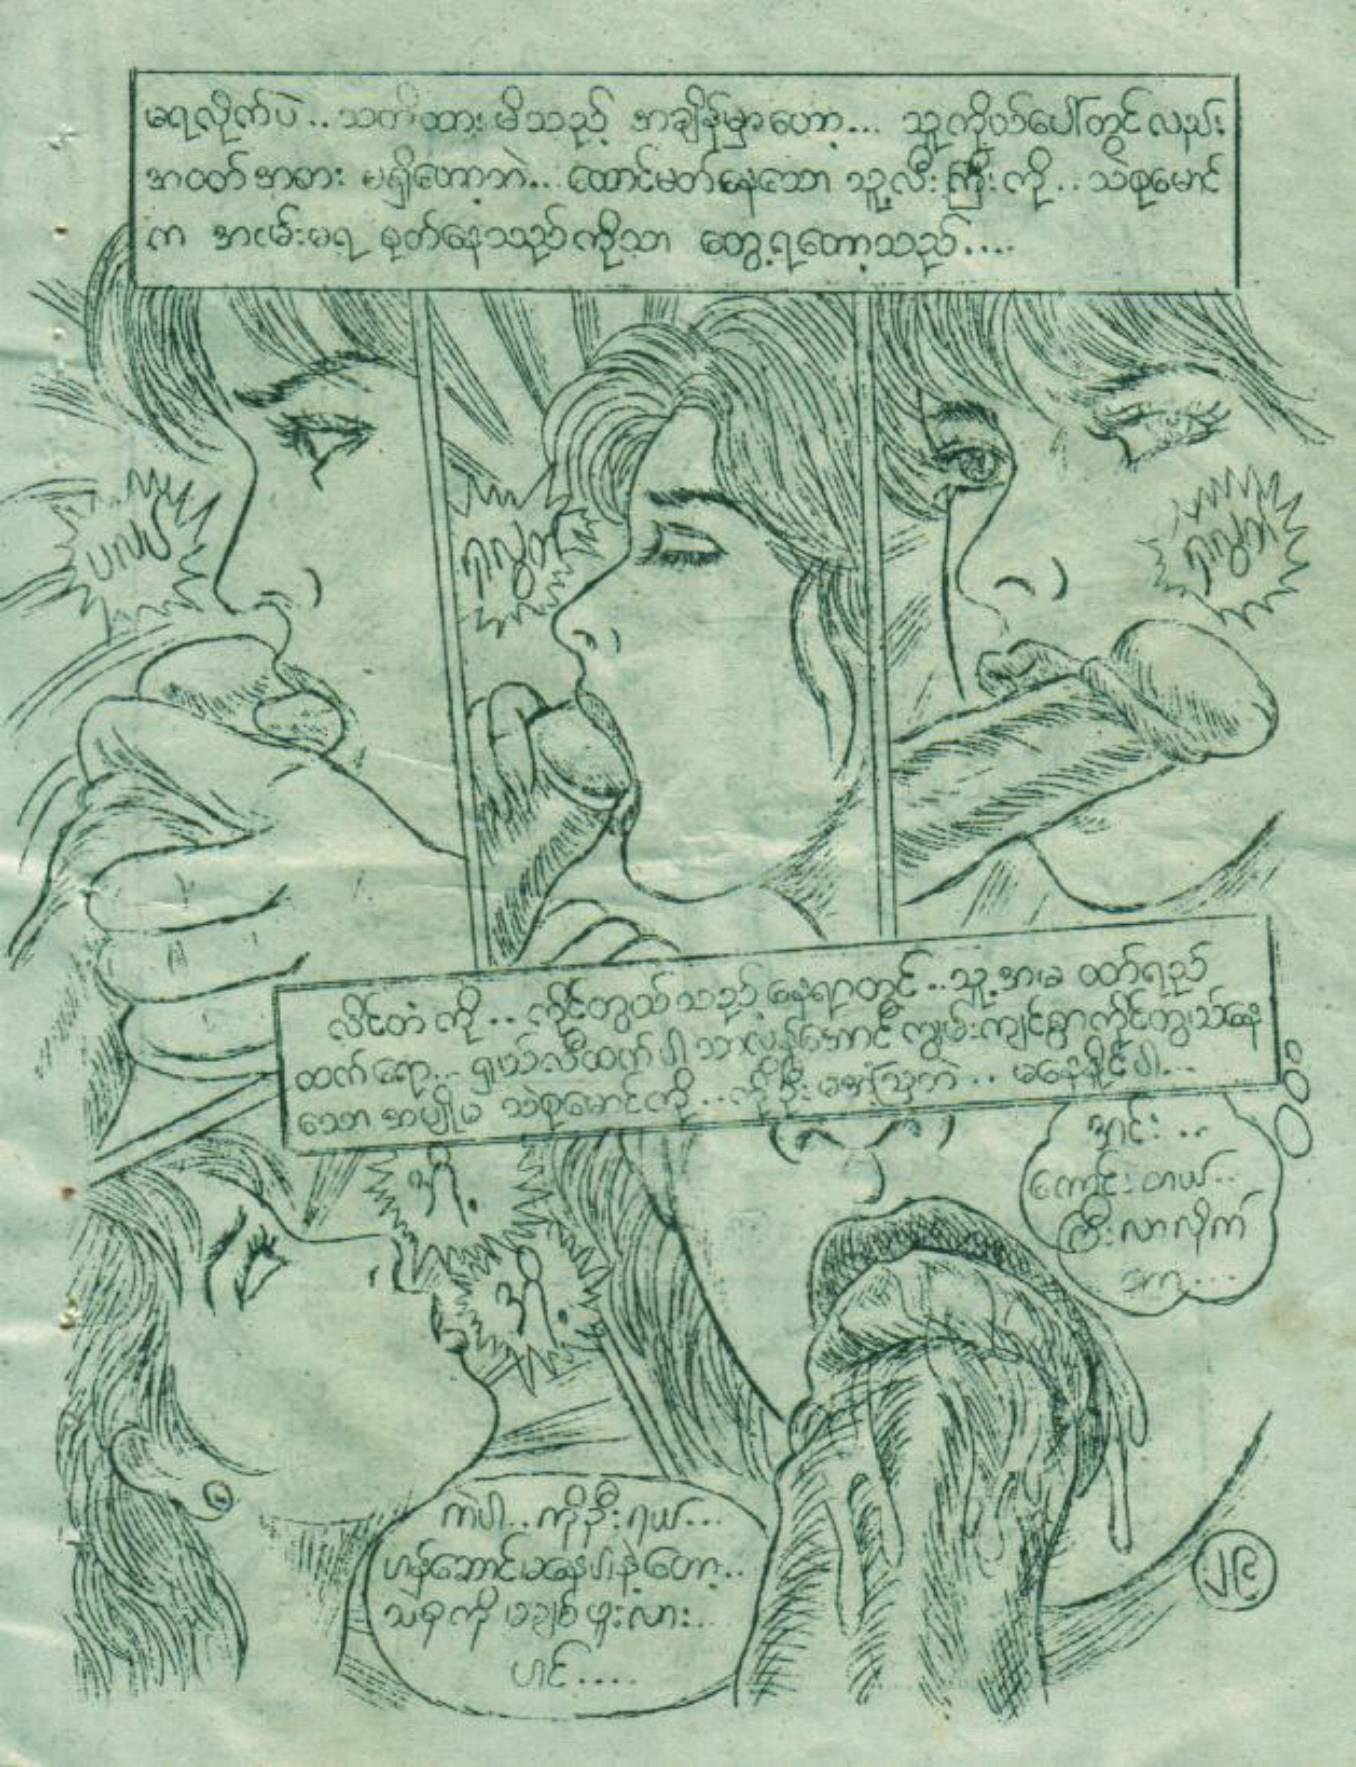 မရလိုက်ပဲ.. သတိထားမိသည့် အချိန်မှာတော့... သူ့ကိုယ်ပေါ်တွင်လည်း
အဝတ်အစား မရှိတော့ဘဲ.. ထောင်မတ်နေသော သူ့လီးကြီးကို.. သဲစုမောင်
က အငမ်းမရ စုတ်နေသည်ကိုသာ တွေ့ရတော့သည်....
ပလပ်
ရလွတ်
ရလွတ်
လိင်တံကို.. ကိုင်တွယ်သည့်နေရာတွင်..
ထက်ရော... ရှယ်လီထက်ပါ သာလွန်အောင် ကျွမ်းကျင်စွာကိုင်တွယ်နေ
သော သဲစုမောင်ကို.. ကိုဦး မအံ့ဩဘဲ.. မနေနိုင်ပါ...
အင်း..
ကောင်းတယ်..
ကြီးလာလိုက်
တာ...
အို.
အို.
ကဲပါ.. ကိုဦးရယ်...
ဟန်ဆောင်မနေပါနဲ့တော့..
သစုကို မချစ်ဖူးလား...
ဟင်....
၂၉